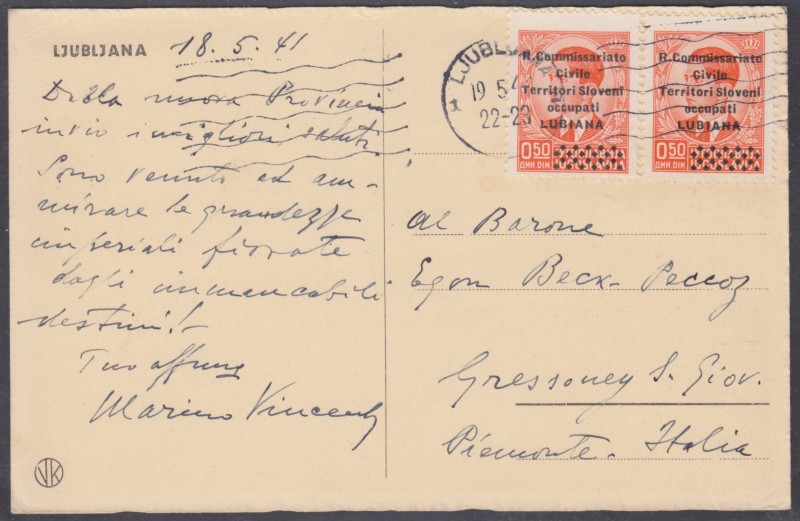 LJUBLJANA 18.5.41
Dalla nuova Provincia
invio i migliori saluti.
Sono venuto ad am-
mirare le grandezze
imperiali fiorate
dagli immancabili
destini!-
Tuo affmo
Marino
VK
LJUBLJANA
19.5.4
22-23
R.Commissariato
Civile
Territori Sloveni
occupati
LUBIANA
0.50
ДИН. DIN.
R.Commissariato
Civile
Territori Sloveni
occupati
LUBIANA
0.50
ДИН. DIN.
Al Barone
Egon Beck-Peccoz
Gressoney S. Giov.
Piemonte-Italia